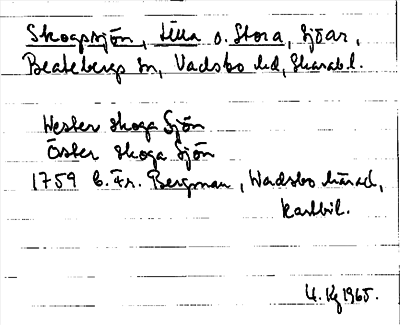 Skogssjön, Lilla o. Stora, sjöar,
Beatebergs sn, Vadsbo hd, Skarab.l.
Wester skoga Sjön
Öster skoga Sjön
1759 C. Fr. Bergman, Wadsbo härad,
kartbil.
1965.